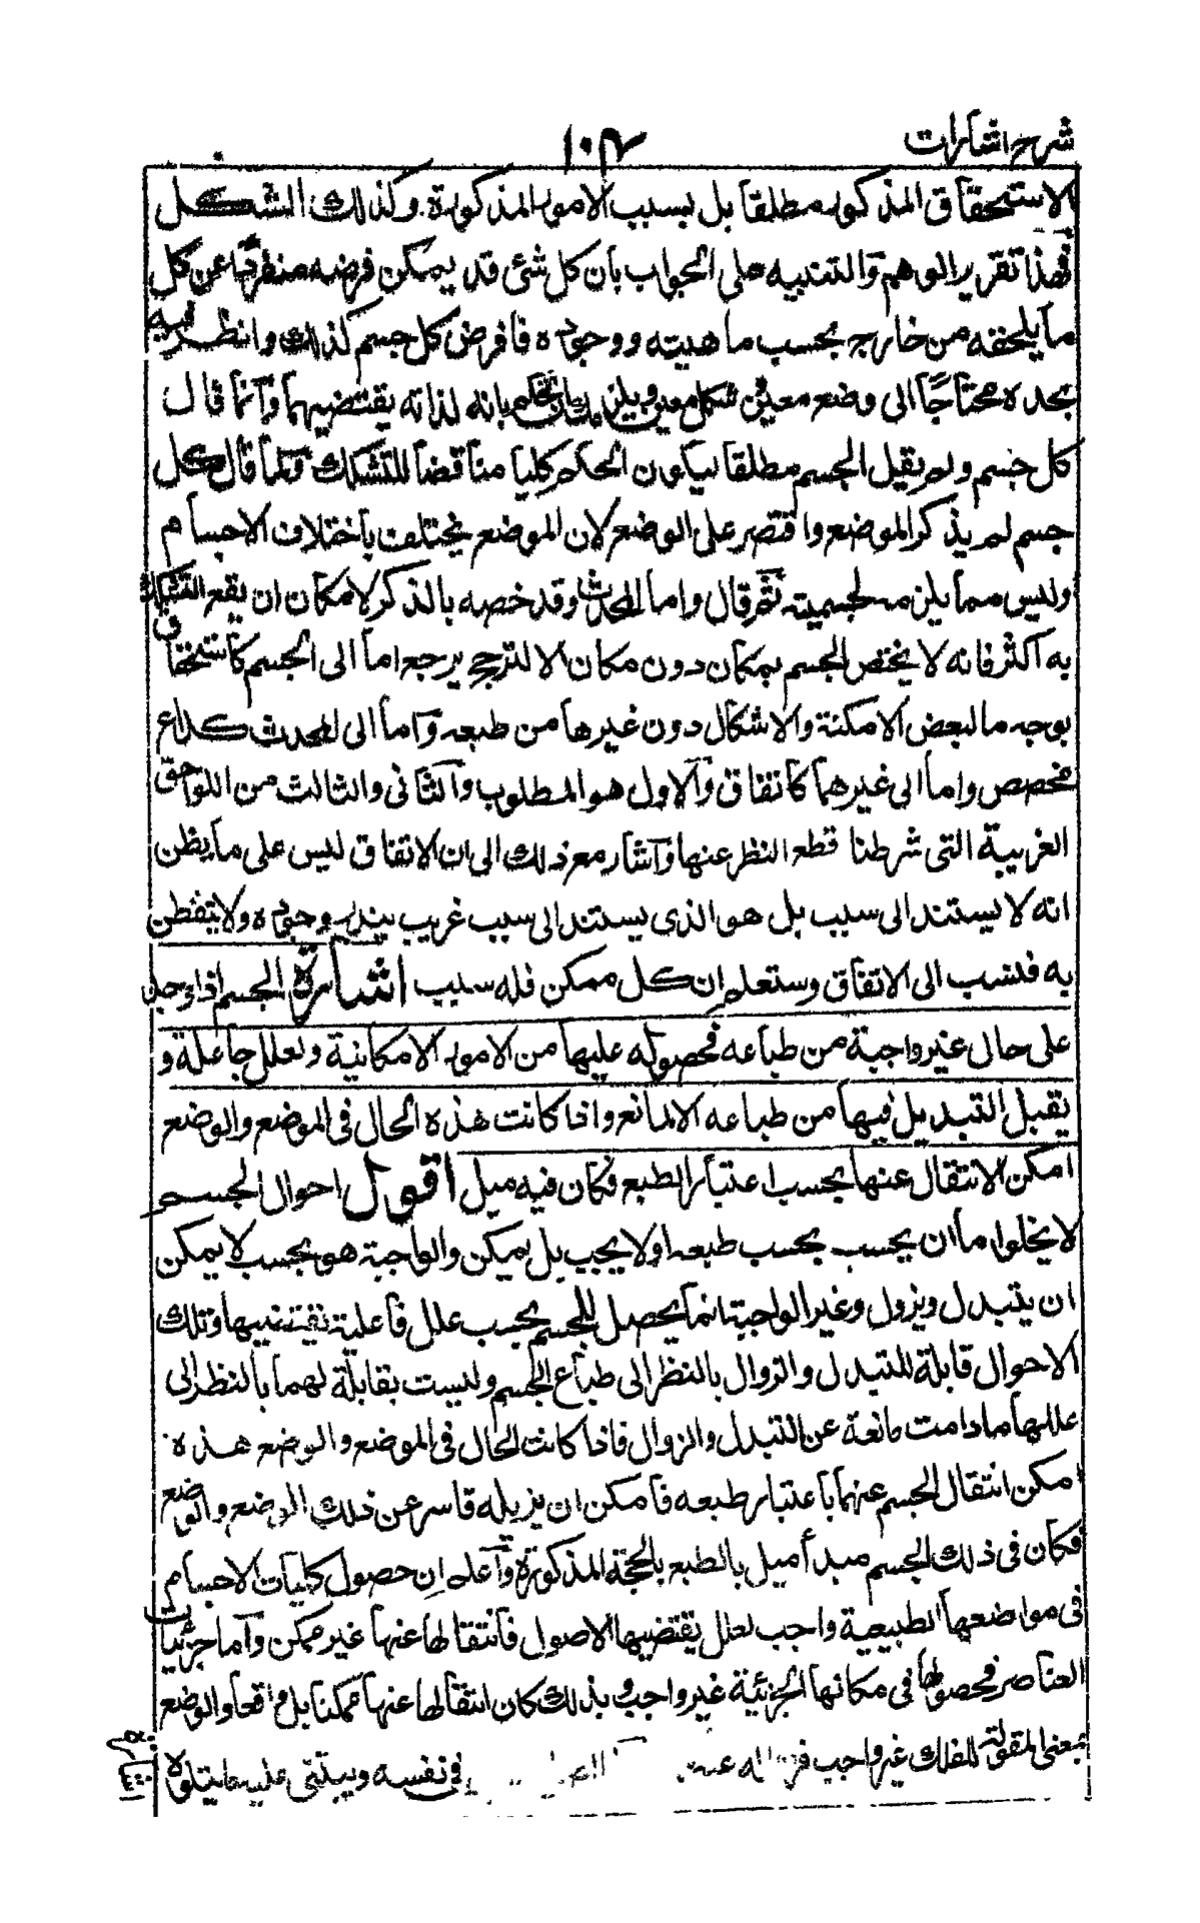 شرح اشارات
الاستحقاق المذكور مطلقا بل بسبب الامور المذكورة وكذلك الشكل
فهذا تقرير الوهم والتنبيه على الجواب بان كل شئ قد يمكن فرضه منفردًا عن كل
ما يلحقه من خارج بحسب ماهيته ووجوده فافرض كل جسم كذلك وانظر فيه
تجده محتاجًا الى وضع معين شكل معين ويلزم بانه لذاته يقتضيهما وانما قال
كل جسم ولم يقل الجسم مطلقا ليكون الحكم كليا مناقضا للتشكك ولما قال كل
جسم لم يذكر الموضع واقتصر على الوضع لان الموضع يختلف باختلاف الاجسام
وليس مما يلزم الجسمية ثم قال واما المحدث وقد خصه بالذكر لامكان ان يقع التشكك
به اكثر فانه لا يختص الجسم بمكان دون مكان الا لترجح يرجع اما الى الجسم كاستحقاق
بوجه ما لبعض الامكنة والاشكال دون غيرها من طبعه واما الى المحدث كداع
مخصص واما الى غيرهما كاتفاق والاول هو المطلوب والثانى والثالث من اللواحق
الغريبة التى شرطنا قطع النظر عنها واشار مع ذلك الى ان الاتفاق ليس على ما يظن
انه لا يستند الى سبب بل هو الذى يستند الى سبب غريب يندر وجوده ولا يتفطن
به فنسب الى الاتفاق وستعلم ان كل ممكن فله سبب اشارة الجسم اذا وجد
على حال غير واجبة من طباعه فحصوله عليها من الامور الامكانية ولعلل جاعلة و
يقبل التبديل فيها من طباعه الا لمانع واذا كانت هذه الحال فى الموضع والوضع
امكن الانتقال عنها بحسب اعتبار الطبع فكان فيه ميل اقول احوال الجسم
لا يخلو اما ان يجسب بحسب طبعه او لا يجب بل يمكن والواجبة هو بحسب لا يمكن
ان يتبدل ويزول وغير الواجبة انما يحصل للجسم بحسب علل فاعلية تقتضيها وتلك
الاحوال قابلة للتبدل والزوال بالنظر الى طباع الجسم وليست بقابلة لهما بالنظر الى
عللها مادامت مانعة عن التبدل والزوال فاذا كانت الحال فى الموضع والوضع هذه
امكن انتقال الجسم عنهما باعتبار طبعه فامكن ان يزيله قاسر عن ذلك الوضع والوضع
فكان فى ذلك الجسم مبدأ ميل بالطبع بالحجة المذكورة واعلم ان حصول كليات الاجسام
فى مواضعها الطبيعية واجب لعلل يقتضيها الاصول فانتقالها عنها غير ممكن واما جزئيات
العناصر فحصولها فى مكانها الجزئية غير واجب وبذلك كان انتقالها عنها ممكنا بل واقعا والوضع
بمعنى المقولة للفلك غير واجب فى نفسه ويبتنى عليه ما يتلوه